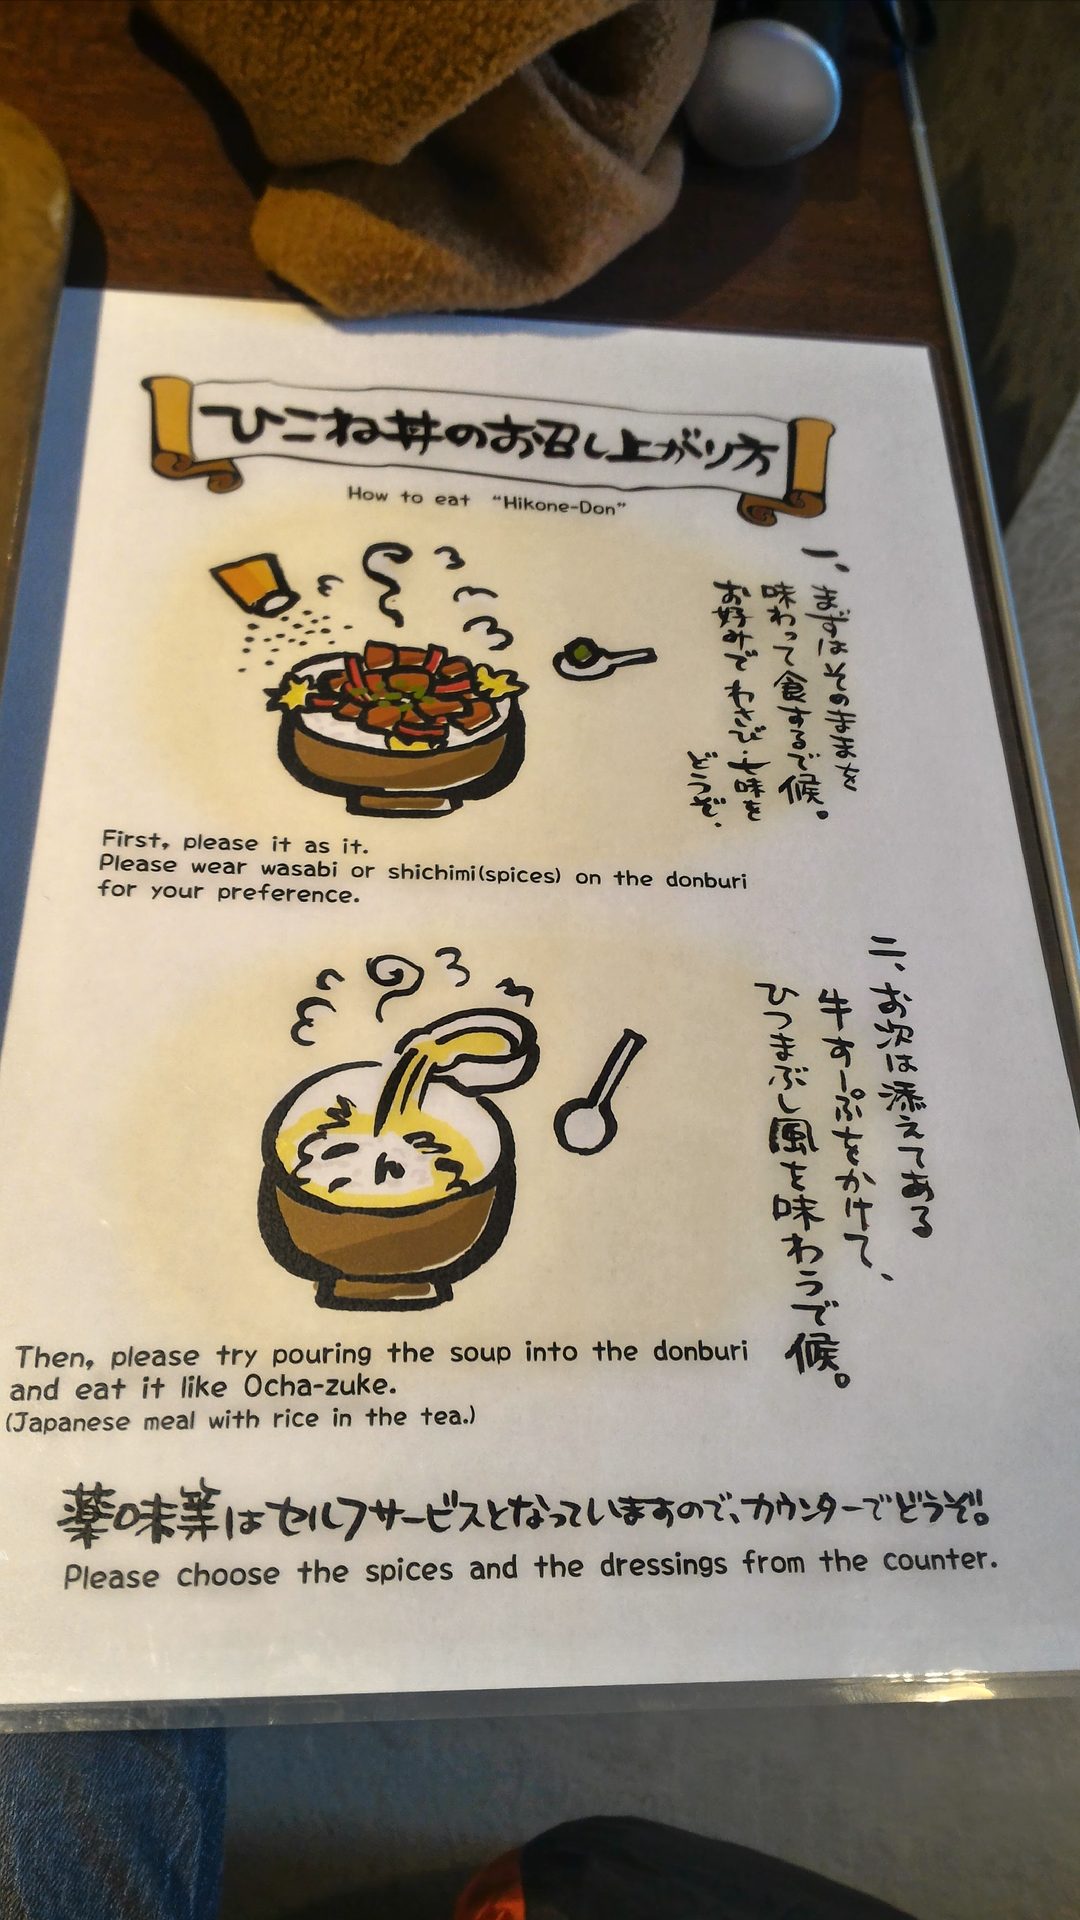 ひこね丼のお召し上がり方
How to eat “Hikone-Don”
一、
まずはそのままを
味わって食するで候。
お好みでわさび・七味を
どうぞ。
First, please it as it.
Please wear wasabi or shichimi(spices) on the donburi
for your preference.
二、お次は添えてある
牛すーぷをかけて、
ひつまぶし風を味わうで候。
Then, please try pouring the soup into the donburi
and eat it like Ocha-zuke.
(Japanese meal with rice in the tea.)
薬味等はセルフサービスとなっていますので、カウンターでどうぞ!。
Please choose the spices and the dressings from the counter.